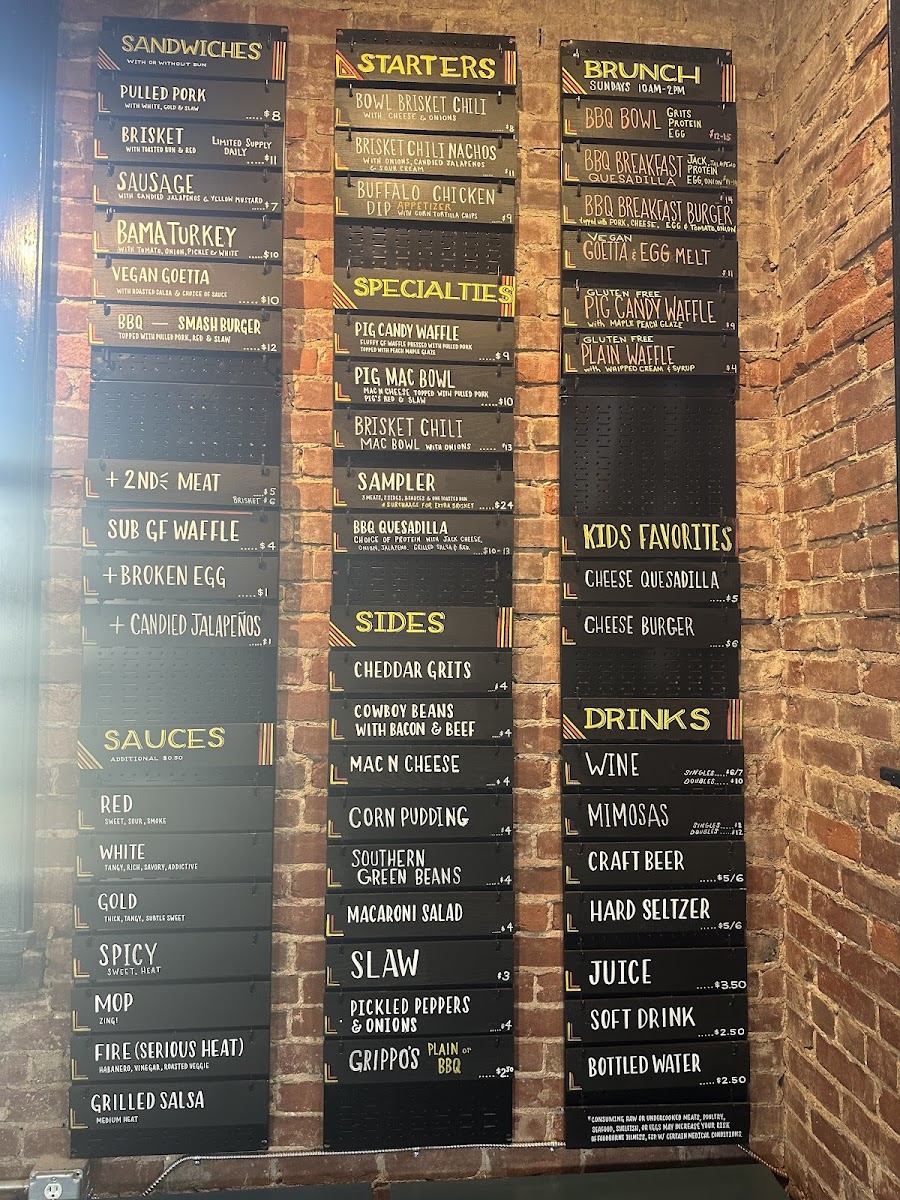 SANDWICHES
WITH OR WITHOUT BUN
PULLED PORK
WITH WHITE, GOLD & SLAW
.....$8
BRISKET
WITH TOASTED BUN & RED
LIMITED SUPPLY
DAILY
.....$11
SAUSAGE
WITH CANDIED JALAPENOS & YELLOW MUSTARD
....$7
BAMA TURKEY
WITH TOMATO, ONION, PICKLE & WHITE
.....$10
VEGAN GOETTA
WITH ROASTED SALSA & CHOICE OF SAUCE
.....$10
BBQ — SMASHBURGER
TOPPED WITH PULLED PORK, RED & SLAW
.....$12
+ 2ND MEAT
....$5
BRISKET $6
SUB GF WAFFLE
....$4
+ BROKEN EGG
....$1
+ CANDIED JALAPEÑOS
.....$1
SAUCES
ADDITIONAL $0.50
RED
SWEET, SOUR, SMOKE
WHITE
TANGY, RICH, SAVORY, ADDICTIVE
GOLD
THICK, TANGY, SUBTLE SWEET
SPICY
SWEET, HEAT
MOP
ZING!
FIRE (SERIOUS HEAT)
HABANERO, VINEGAR, ROASTED VEGGIE
GRILLED SALSA
MEDIUM HEAT
STARTERS
BOWL BRISKET CHILI
WITH CHEESE & ONIONS
$8
BRISKET CHILI NACHOS
WITH ONIONS, CANDIED JALAPENOS
& SOUR CREAM
$11
BUFFALO CHICKEN
DIP APPETIZER
WITH CORN TORTILLA CHIPS
....$9
SPECIALTIES
PIG CANDY WAFFLE
FLUFFY GF WAFFLE PRESSED WITH PULLED PORK
TOPPED WITH PEACH MAPLE GLAZE
.....$9
PIG MAC BOWL
MAC N CHEESE TOPPED WITH PULLED PORK
PIG'S RED & SLAW
.....$10
BRISKET CHILI
MAC BOWL WITH ONIONS
$13
SAMPLER
3 MEATS, 2 SIDES, 2 SAUCES & ONE TOASTED BUN
SURCHARGE FOR EXTRA BRISKET
.....$24
BBQ QUESADILLA
CHOICE OF PROTEIN WITH JACK CHEESE,
ONION, JALAPENO, GRILLED SALSA & RED.
....$10-13
SIDES
CHEDDAR GRITS
....$4
COWBOY BEANS
WITH BACON & BEEF
....$4
MAC N CHEESE
....$4
CORN PUDDING
....$4
SOUTHERN
GREEN BEANS
.....$4
MACARONI SALAD
....$4
SLAW
$3
PICKLED PEPPERS
& ONIONS
...$4
GRIPPO'S PLAIN or
BBQ
.....$2.50
BRUNCH
SUNDAYS 10AM-2PM
BBQ BOWL
GRITS
PROTEIN
EGG
$12-15
BBQ BREAKFAST
QUESADILLA
JACK, JALAPENO
PROTEIN
EGG, ONION
$14
BBQ BREAKFAST BURGER
topped with PORK, CHEESE, EGG & TOMATO, ONION
VEGAN
GOETTA & EGG MELT
$11
GLUTEN FREE
PIG CANDY WAFFLE
with MAPLE PEACH GLAZE
$9
GLUTEN FREE
PLAIN WAFFLE
with WHIPPED CREAM & SYRUP
$4
KIDS FAVORITES
CHEESE QUESADILLA
.....$5
CHEESE BURGER
.....$6
DRINKS
WINE
SINGLES....$6/7
DOUBLES....$10
MIMOSAS
SINGLES.....$8
DOUBLES....$12
CRAFT BEER
.....$5/6
HARD SELTZER
.....$5/6
JUICE
.....$3.50
SOFT DRINK
.....$2.50
BOTTLED WATER
.....$2.50
*CONSUMING RAW OR UNDERCOOKED MEATS, POULTRY,
SEAFOOD, SHELLFISH, OR EGGS MAY INCREASE YOUR RISK
OF FOODBORNE ILLNESS, ESP W/ CERTAIN MEDICAL CONDITIONS.